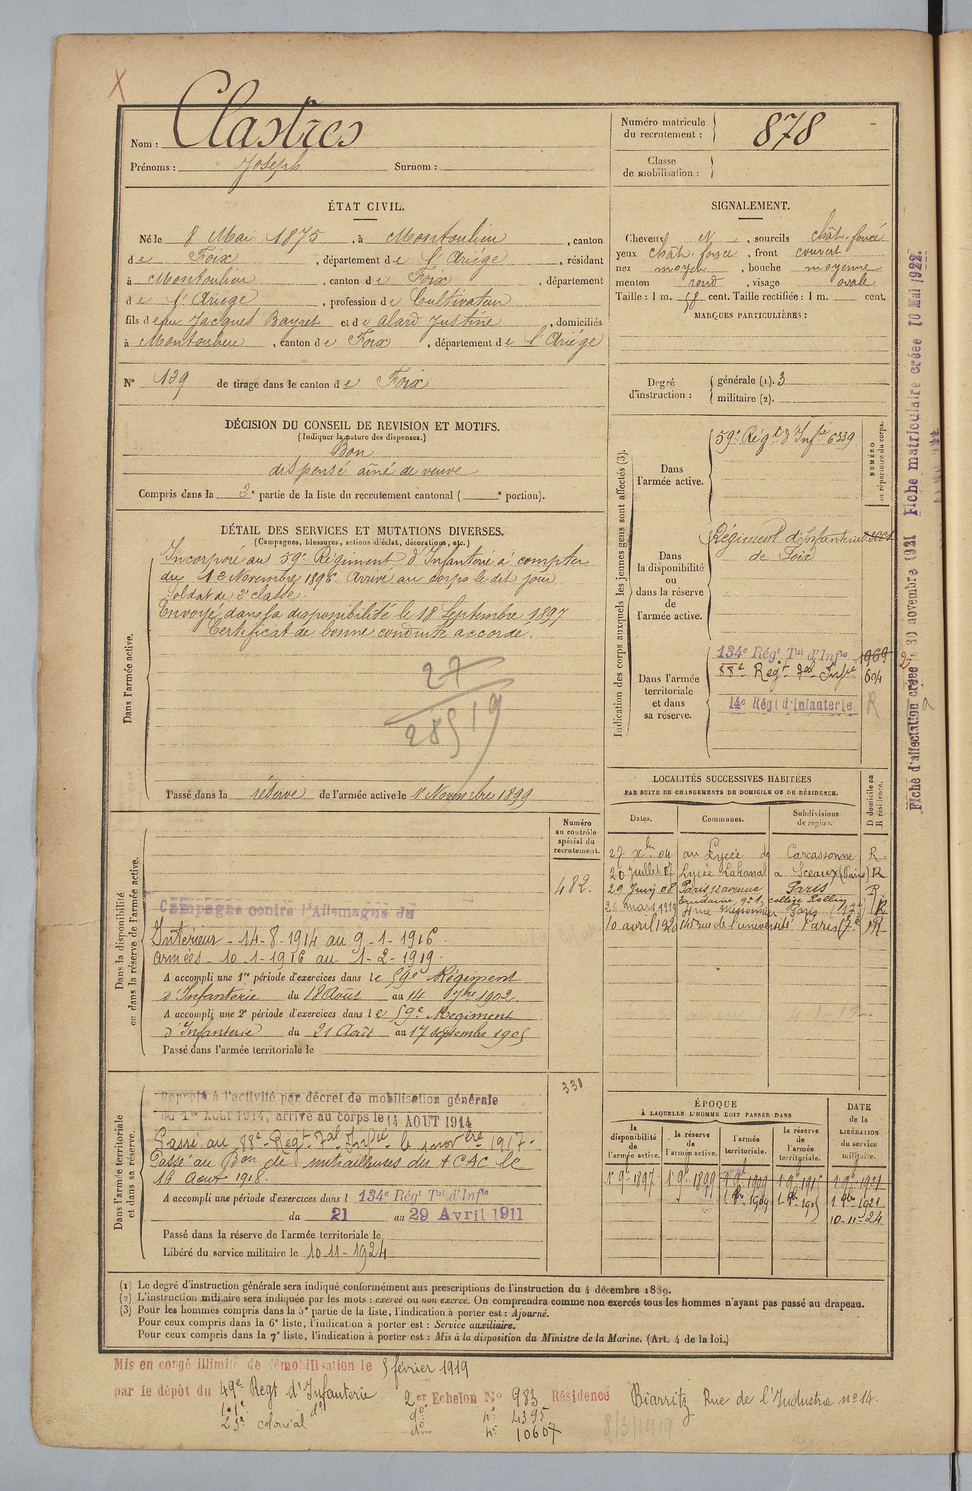 X
Nom : Clastres
Prénoms : Joseph Surnom :
Numéro matricule du recrutement : 878
Classe de mobilisation :
ÉTAT CIVIL.
Né le 8 Mai 1875, à Montoulieu, canton
de Foix, département de l'Ariège, résidant
à Montoulieu, canton de Foix, département
de l'Ariège, profession de Cultivateur
fils de feu Jacques Bayret et de Alard Justine, domiciliés
à Montoulieu, canton de Foix, département de l'Ariège
N° 139 de tirage dans le canton de Foix
SIGNALEMENT.
Cheveux N, sourcils chât. foncé
yeux chât. foncé, front couvert
nez moyen, bouche moyenne
menton rond, visage ovale
Taille : 1 m. 58 cent. Taille rectifiée : 1 m. cent.
MARQUES PARTICULIÈRES :
Degré d'instruction : générale (1). 3
militaire (2).
DÉCISION DU CONSEIL DE REVISION ET MOTIFS.
(Indiquer la nature des dispenses.)
Bon
dispensé aîné de veuve
Compris dans la 2e partie de la liste du recrutement cantonal ( e portion).
DÉTAIL DES SERVICES ET MUTATIONS DIVERSES.
(Campagnes, blessures, actions d'éclat, décorations, etc.)
Dans l'armée active.
Incorporé au 59e Régiment d'Infanterie à compter
du 13 Novembre 1896. Arrivé au corps le dit jour
Soldat de 2e classe.
Envoyé dans la disponibilité le 18 Septembre 1897
Certificat de bonne conduite accordé.
27
285 19
Passé dans la réserve de l'armée active le 1er Novembre 1899
Indication des corps auxquels les jeunes gens sont affectés (3).
NUMÉRO au répertoire du corps.
Dans l'armée active.
59e Régt d'Infie 6339
Dans la disponibilité ou dans la réserve de l'armée active.
Régiment d'Infanterie
de Foix
Dans l'armée territoriale et dans sa réserve.
134e Régt Tal d'Infie 1969
Regt Tal Infie 604
14e Régt d'Infanterie R
Fiche d'affectation créée le 30 novembre 1921 Fiche matriculaire créée 10 Mai 1922.
LOCALITÉS SUCCESSIVES HABITÉES
PAR SUITE DE CHANGEMENTS DE DOMICILE OU DE RÉSIDENCE.
D domicile ou R résidence.
Dates. Communes. Subdivisions de région.
27 xbre 04 au Lycée de Carcassonne R
20 juillet 07 Lycée Lakanal à Sceaux (Seine) R
29 Juin 08 Paris 12 avenue Paris R
Trudaine, collège Rollin
26 mars 1913 4 rue Meissonier Paris (17e) R
10 avril 1920 rue de l'université Paris (7e) R
Dans la disponibilité ou dans la réserve de l'armée active.
Numéro au contrôle spécial du recrutement.
482.
Campagne contre l'Allemagne du
Intérieur - 14-8-1914 au 9-1-1916
armées - 10-1-1916 au 1-2-1919.
A accompli une 1re période d'exercices dans le 59e Régiment
d'Infanterie du 18 Août au 14 7bre 1902.
A accompli une 2e période d'exercices dans le 59e Régiment
d'Infanterie du 21 Août au 17 septembre 1905
Passé dans l'armée territoriale le
Dans l'armée territoriale et dans sa réserve.
331
Rappelé à l'activité par décret de mobilisation générale
du 1er AOUT 1914, arrivé au corps le 14 AOUT 1914
Passé au 88e Régt Tal Infie le 1 novbre 1917.
Passé au Bon de mitrailleuses du ACAC le
16 Août 1918.
A accompli une période d'exercices dans l 134e Régt Tal d'Infie
du 21 au 29 Avril 1911
Passé dans la réserve de l'armée territoriale le
Libéré du service militaire le 10-11-1924
ÉPOQUE
À LAQUELLE L'HOMME DOIT PASSER DANS
DATE de la LIBÉRATION du service militaire.
la disponibilité de l'armée active. la réserve de l'armée active. l'armée territoriale. la réserve de l'armée territoriale.
1er 9bre 1897 1er 9bre 1899 1er 9bre 1909 1er 9bre 1915 1er 9bre 1921
1 9bre 1909 1 9bre 1915 1 9bre 1921
10-11-24
(1) Le degré d'instruction générale sera indiqué conformément aux prescriptions de l'instruction du 4 décembre 1889.
(2) L'instruction militaire sera indiquée par les mots : exercé ou non exercé. On comprendra comme non exercés tous les hommes n'ayant pas passé au drapeau.
(3) Pour les hommes compris dans la 5e partie de la liste, l'indication à porter est : Ajourné.
Pour ceux compris dans la 6e liste, l'indication à porter est : Service auxiliaire.
Pour ceux compris dans la 7e liste, l'indication à porter est : Mis à la disposition du Ministre de la Marine. (Art. 4 de la loi.)
Mis en congé illimité de démobilisation le 5 février 1919
par le dépôt du 49e Regt d'Infanterie 2er Echelon N° 983 Résidence Biarritz Rue de l'Industrie n° 14.
do n° 4395
23e colonial do n° 10607
8/3/1919